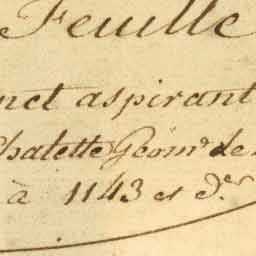 Feuille
nct aspirant
Chalette Géom.e de
à 1143 et d.er